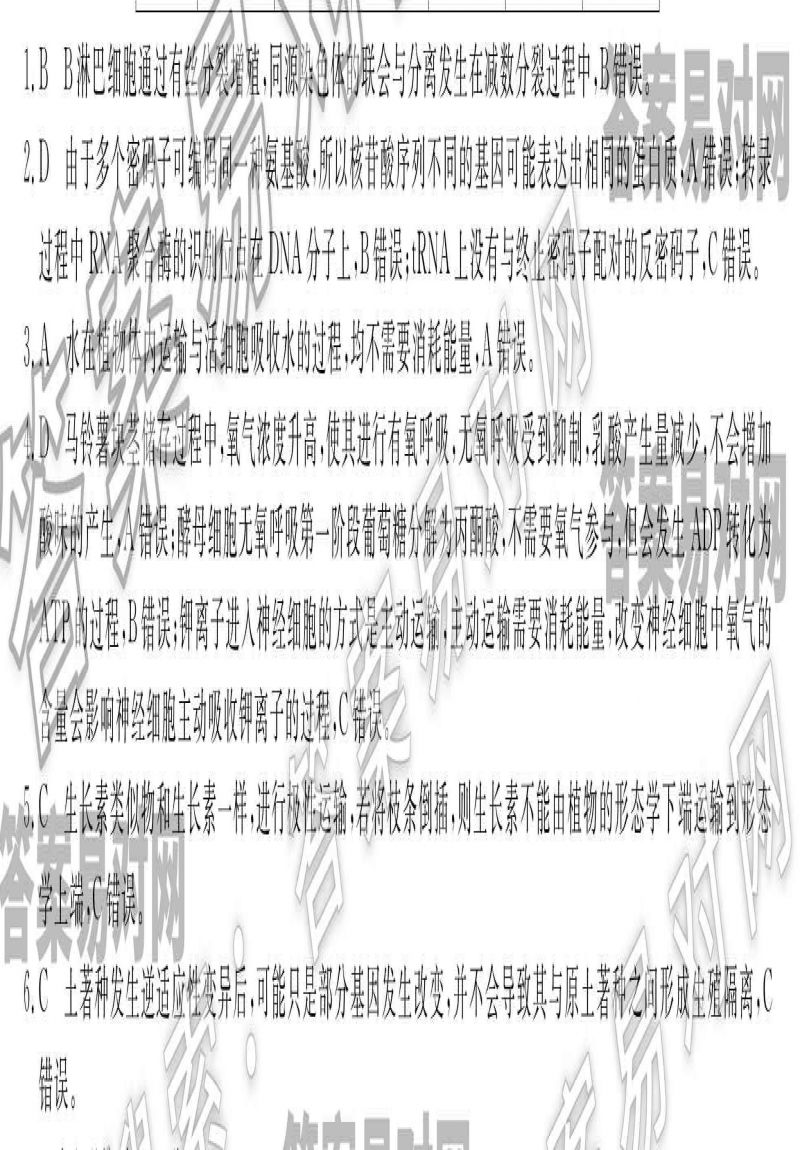 1.B B淋巴细胞通过有丝分裂增殖,同源染色体的联会与分离发生在减数分裂过程中,B错误。
2.D 由于多个密码子可编码同一种氨基酸,所以核苷酸序列不同的基因可能表达出相同的蛋白质,A错误;转录
过程中RNA聚合酶的识别位点在DNA分子上,B错误;tRNA上没有与终止密码子配对的反密码子,C错误。
3.A 水在植物体内运输与活细胞吸收水的过程,均不需要消耗能量,A错误。
4.D 马铃薯块茎储存过程中,氧气浓度升高,使其进行有氧呼吸,无氧呼吸受到抑制,乳酸产生量减少,不会增加
酸味的产生,A错误;酵母细胞无氧呼吸第一阶段葡萄糖分解为丙酮酸,不需要氧气参与,但会发生ADP转化为
ATP的过程,B错误;钾离子进入神经细胞的方式是主动运输,主动运输需要消耗能量,改变神经细胞中氧气的
含量会影响神经细胞主动吸收钾离子的过程,C错误。
5.C 生长素类似物和生长素一样,进行极性运输,若将枝条倒插,则生长素不能由植物的形态学下端运输到形态
学上端,C错误。
6.C 土著种发生逆适应性变异后,可能只是部分基因发生改变,并不会导致其与原土著种之间形成生殖隔离,C
错误。
答案易对网
答案易对网
答案易对网
答案易对网